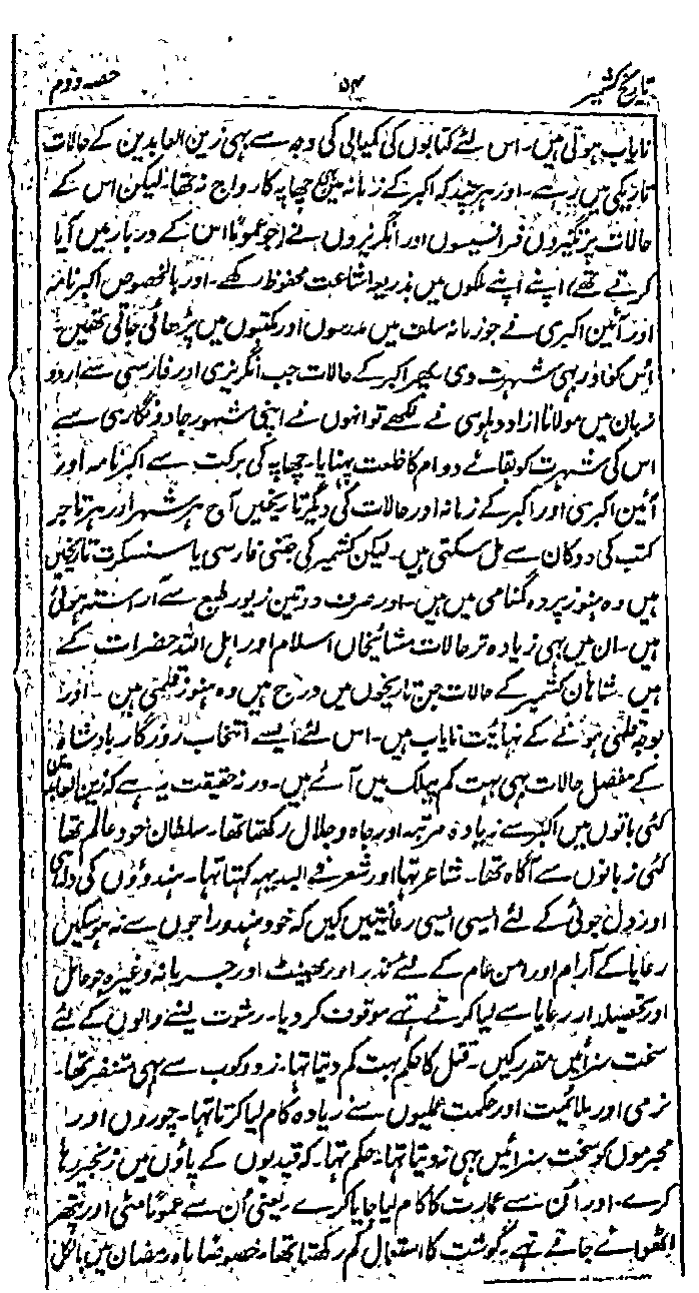 تاریخ کشمیر ۵۴ حصہ دوم
نایاب ہوتی ہیں۔ اس لئے کتابوں کی کمیابی کی وجہ سے بہی زین العابدین کے حالات
تاریکی میں رہے۔ اور ہر چند کہ اکبر کے زمانہ میں چھاپہ کا رواج نہ تھا۔ لیکن اس کے
حالات پرتگیزوں فرانسیسوں اور انگریزوں نے (جو عموماً اس کے دربار میں آیا
کرتے تھے) اپنے اپنے ملکوں میں بذریعہ اشاعت محفوظ رکھے۔ اور بالخصوص اکبر نامہ
اور آئین اکبری نے جو زمانہ سلف میں مدرسوں اور مکتبوں میں پڑھائی جاتی تھیں
اس کو اور بہی شہرت دی پھر اکبر کے حالات جب انگریزی اور فارسی سے اردو
زبان میں مولانا آزاد دہلوی نے لکھے تو انہوں نے اپنی مشہور جادو نگاری سے
اس کی شہرت کو بقائے دوام کا خلعت پہنایا۔ چھاپہ کی برکت سے اکبر نامہ اور
آئین اکبری اور اکبر کے زمانہ اور حالات کی دیگر تاریخیں آج ہر شہر اور ہر تاجر
کتب کی دوکان سے مل سکتی ہیں۔ لیکن کشمیر کی جتنی فارسی یا سنسکرت تاریخیں
ہیں وہ ہنوز پردہ گمنامی میں ہیں۔ اور صرف دو تین زیور طبع سے آراستہ ہوئی
ہیں۔ ان میں بہی زیادہ تر حالات مشائخاں اسلام اور اہل اللہ حضرات کے
ہیں۔ شاہان کشمیر کے حالات جن تاریخوں میں درج ہیں وہ ہنوز قلمی ہیں۔ اور
بوجہ قلمی ہونے کے نہائیت نایاب ہیں۔ اس لئے ایسے انتخاب روزگار بادشاہ
کے مفصل حالات بہی بہت کم پبلک میں آئے ہیں۔ ورنہ حقیقت یہ ہے کہ زین العابدین
کئی باتوں میں اکبر سے زیادہ مرتبہ اور جاہ و جلال رکھتا تھا۔ سلطان خود عالم تھا
کئی زبانوں سے آگاہ تھا۔ شاعر تہا اور شعر فی البدیہہ کہتا تہا۔ ہندوؤں کی دلدہی
اور دل جوئی کے لئے ایسی ایسی رعائیتیں کیں کہ خود ہندو راجوں سے نہ ہو سکیں
رعایا کے آرام اور امن عام کے لئے نذر اور بھینٹ اور جرمانہ وغیرہ جو عامل
اور تحصیلدار رعایا سے لیا کرتے تہے موقوف کر دیا۔ رشوت لینے والوں کے لئے
سخت سزائیں مقرر کیں۔ قتل کا حکم بہت کم دیتا تہا۔ زد و کوب سے بہی متنفر تھا۔
نرمی اور ملائمیت اور حکمت عملیوں سے زیادہ کام لیا کرتا تہا۔ چوروں اور
مجرموں کو سخت سزائیں بہی نہ دیتا تہا۔ حکم تہا۔ کہ قیدیوں کے پاؤں میں زنجیر رہا
کرے۔ اور ان سے عمارت کا کام لیا جایا کرے یعنی ان سے عموماً مٹی اور پتھر
اٹھوائے جاتے تہے۔ گوشت کا استعمال کم رکھتا تھا۔ خصوصاً ماہ رمضان میں بالکل